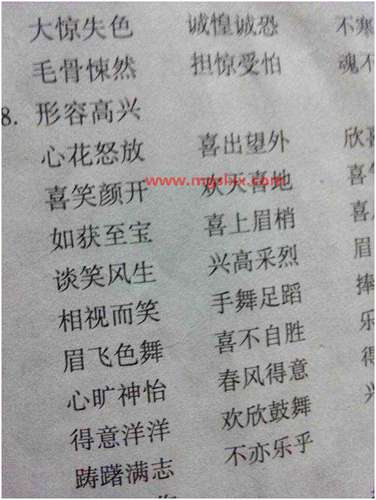 大惊失色 诚惶诚恐 不寒
毛骨悚然 担惊受怕 魂不
8. 形容高兴
心花怒放 喜出望外 欣喜
喜笑颜开 欢天喜地 喜
www.mgslix.com
如获至宝 喜上眉梢 喜
谈笑风生 兴高采烈 眉
相视而笑 手舞足蹈 捧
眉飞色舞 喜不自胜 乐
心旷神怡 春风得意 得
得意洋洋 欢欣鼓舞 兴
踌躇满志 不亦乐乎